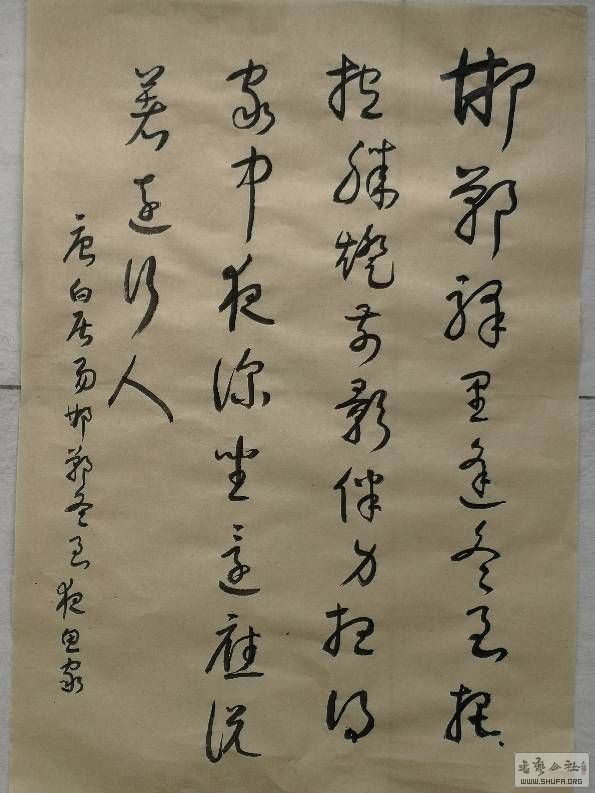 邯鄲驛里逢冬至抱
抱膝燈前影伴身想得
家中夜深坐還應說
著遠行人
唐白居易邯鄲冬至夜思家
书艺公社
WWW.SHUFA.ORG